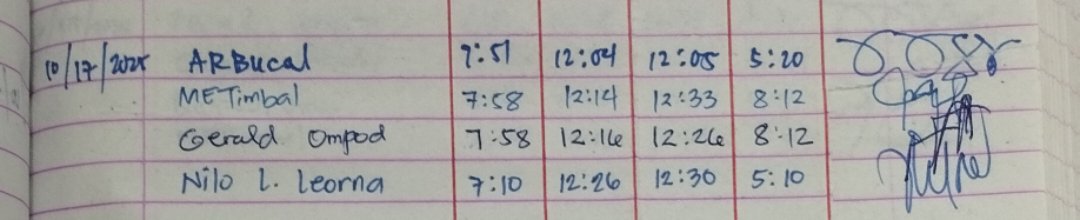 10/17/2025 ARBucal 7:51 12:04 12:05 5:20
METimbal 7:58 12:14 12:33 8:12
Gerald Ompod 7:58 12:16 12:26 8:12
Nilo L. Leorna 7:10 12:26 12:30 5:10